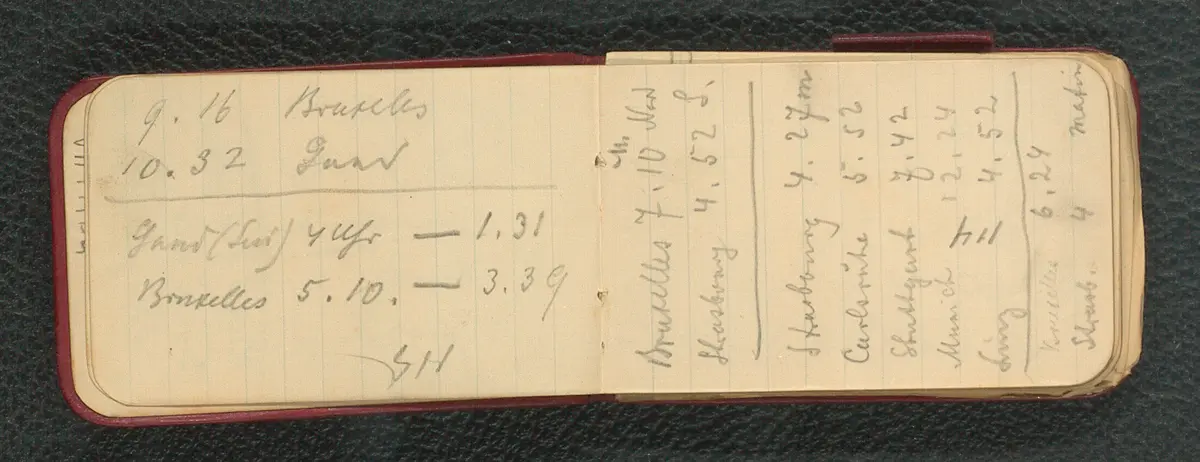 9.16 Bruxelles
10.32 Gand
Gand (Sud) 4 Uhr — 1.31
Bruxelles 5.10. — 3.39
Bruxelles 7.10 Nord
Strasbourg 4.52 S.
Strasbourg 4.27 m
Carlsruhe 5.52
Stuttgart 7.42
Munich 12.24
Linz 4.52
Bruxelles 6.24
Strasb. 4 matin